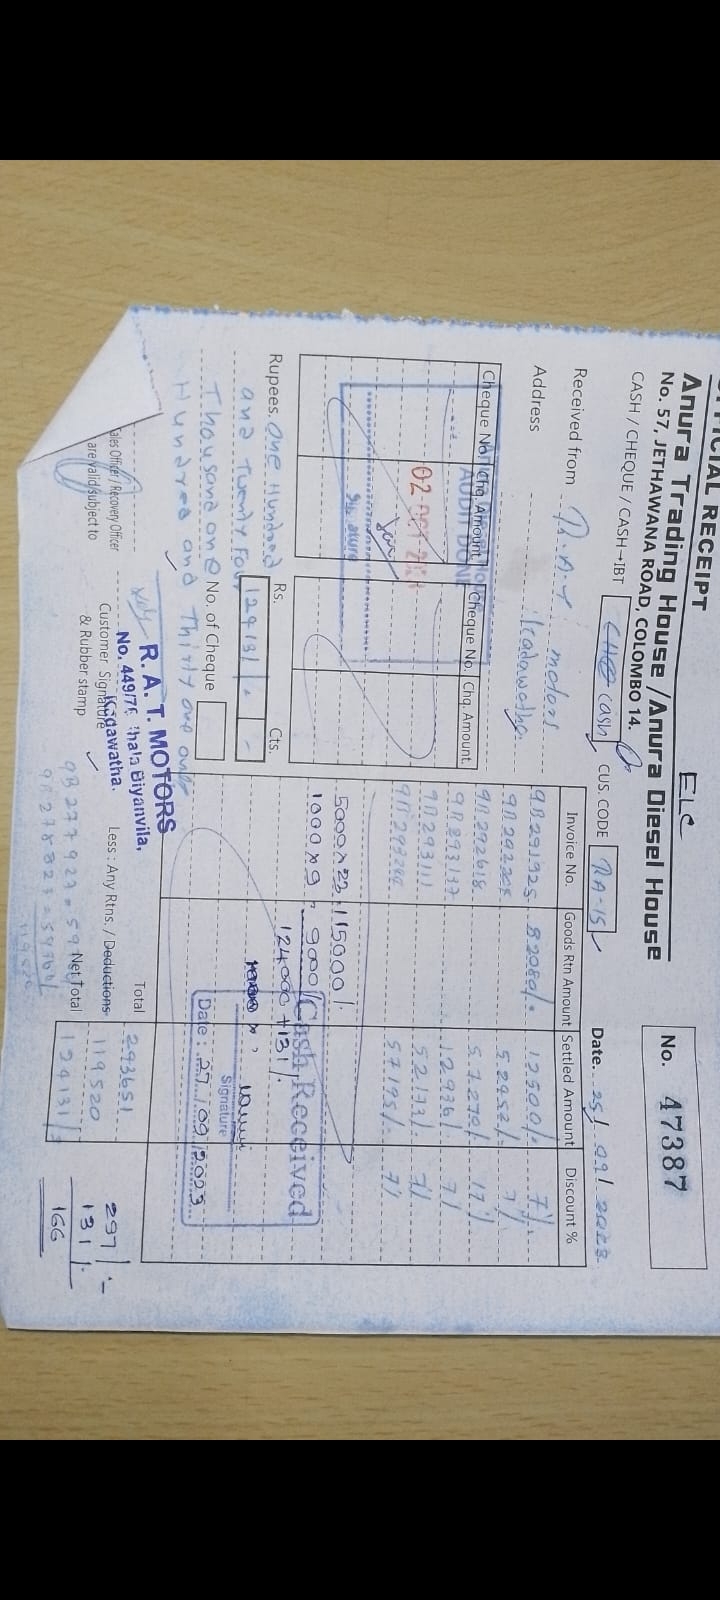 OFFICIAL RECEIPT
ELC
Anura Trading House /Anura Diesel House
No. 57, JETHAWANA ROAD, COLOMBO 14.
No. 47387
CASH / CHEQUE / CASH→IBT
cash
CUS. CODE RA-15
Date. 25/ 09/ 2023
Received from R.A.T motors
Address Kadawatha
Cheque No. Chq. Amount Cheque No. Chq. Amount.
AUDIT DONE
Signature
Invoice No. Goods Rtn Amount Settled Amount Discount %
9B291925 82080/. 12500/. 7%
52952/. 7%
9B292618 57270/. 17%
9B293137 12936/. 7%
9B293111 52133/. 7%
57195/. 7%
5000×23 115000/.
1000×9 9000/.
124000+131/.
Cash Received
Signature
Date : 27/09/2023
Rupees. One Hundred
and Twenty Four
Thousand one
Hundred and Thirty one only
Rs. Cts.
124131/. -
No. of Cheque
R. A. T. MOTORS
Biyanvila,
Kadawatha.
Sales Officer / Recovery Officer
Customer Signature
& Rubber stamp
are valid subject to
Total 293651
Less : Any Rtns. / Deductions 119520
Net Total 124131/.
297/-
131/.
166